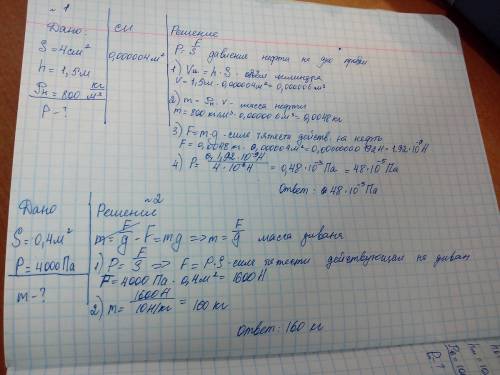 №1
Дано:
S = 4 см²
h = 1,5 м
ρн = 800 кг/м³
P - ?
СИ
0,000004 м²
Решение
P = F/S давление нефти на дно
1) Vц = h · S - объём цилиндра
V = 1,5м · 0,000004м² = 0,000006м³
2) m = ρн · v - масса нефти
m = 800 кг/м³ · 0,000006м³ = 0,0048кг
3) F = m·g - сила тяжести действ. на нефть
F = 0,0048кг · 0,00004м² = 0,0000000 92Н = 1,92·10⁻⁹Н
4) P = 1,92·10⁻⁹Н / 4·10⁻⁶Н = 0,48·10⁻³Па = 48·10⁻⁵Па
Ответ: 48·10⁻⁵Па
№2
Дано
S = 0,4м²
P = 4000Па
m - ?
Решение
m = F/g - F = mg => m = F/g масса дивана
1) P = F/S => F = P·S - сила тяжести действующая на диван
F = 4000Па · 0,4м² = 1600Н
2) m = 1600Н / 10Н/кг = 160 кг
Ответ: 160 кг